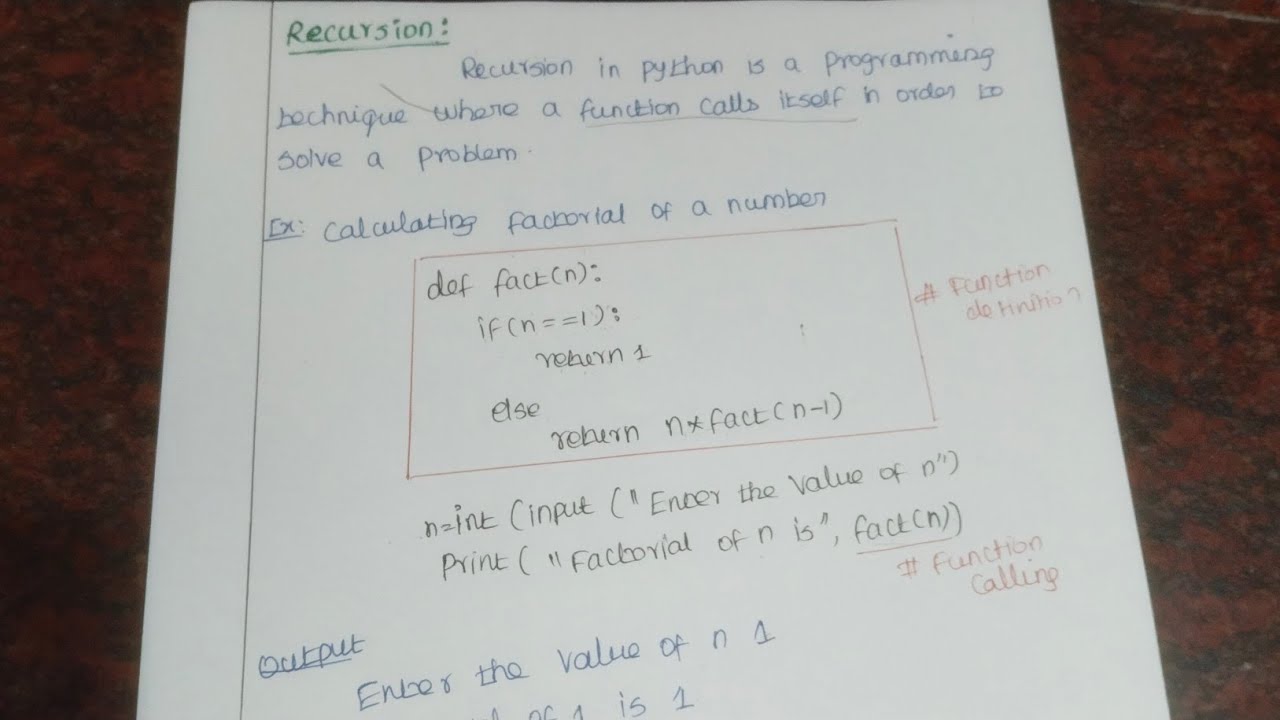 Recursion:
Recursion in python is a programming
technique where a function calls itself in order to
solve a problem.
Ex: Calculating factorial of a number
def fact(n):
if(n==1):
return 1
else
return n*fact(n-1)
# Function
definition
n=int (input ("Enter the value of n")
Print ("Factorial of n is", fact(n))
# Function
calling
Output
Enter the value of n 1
of 1 is 1